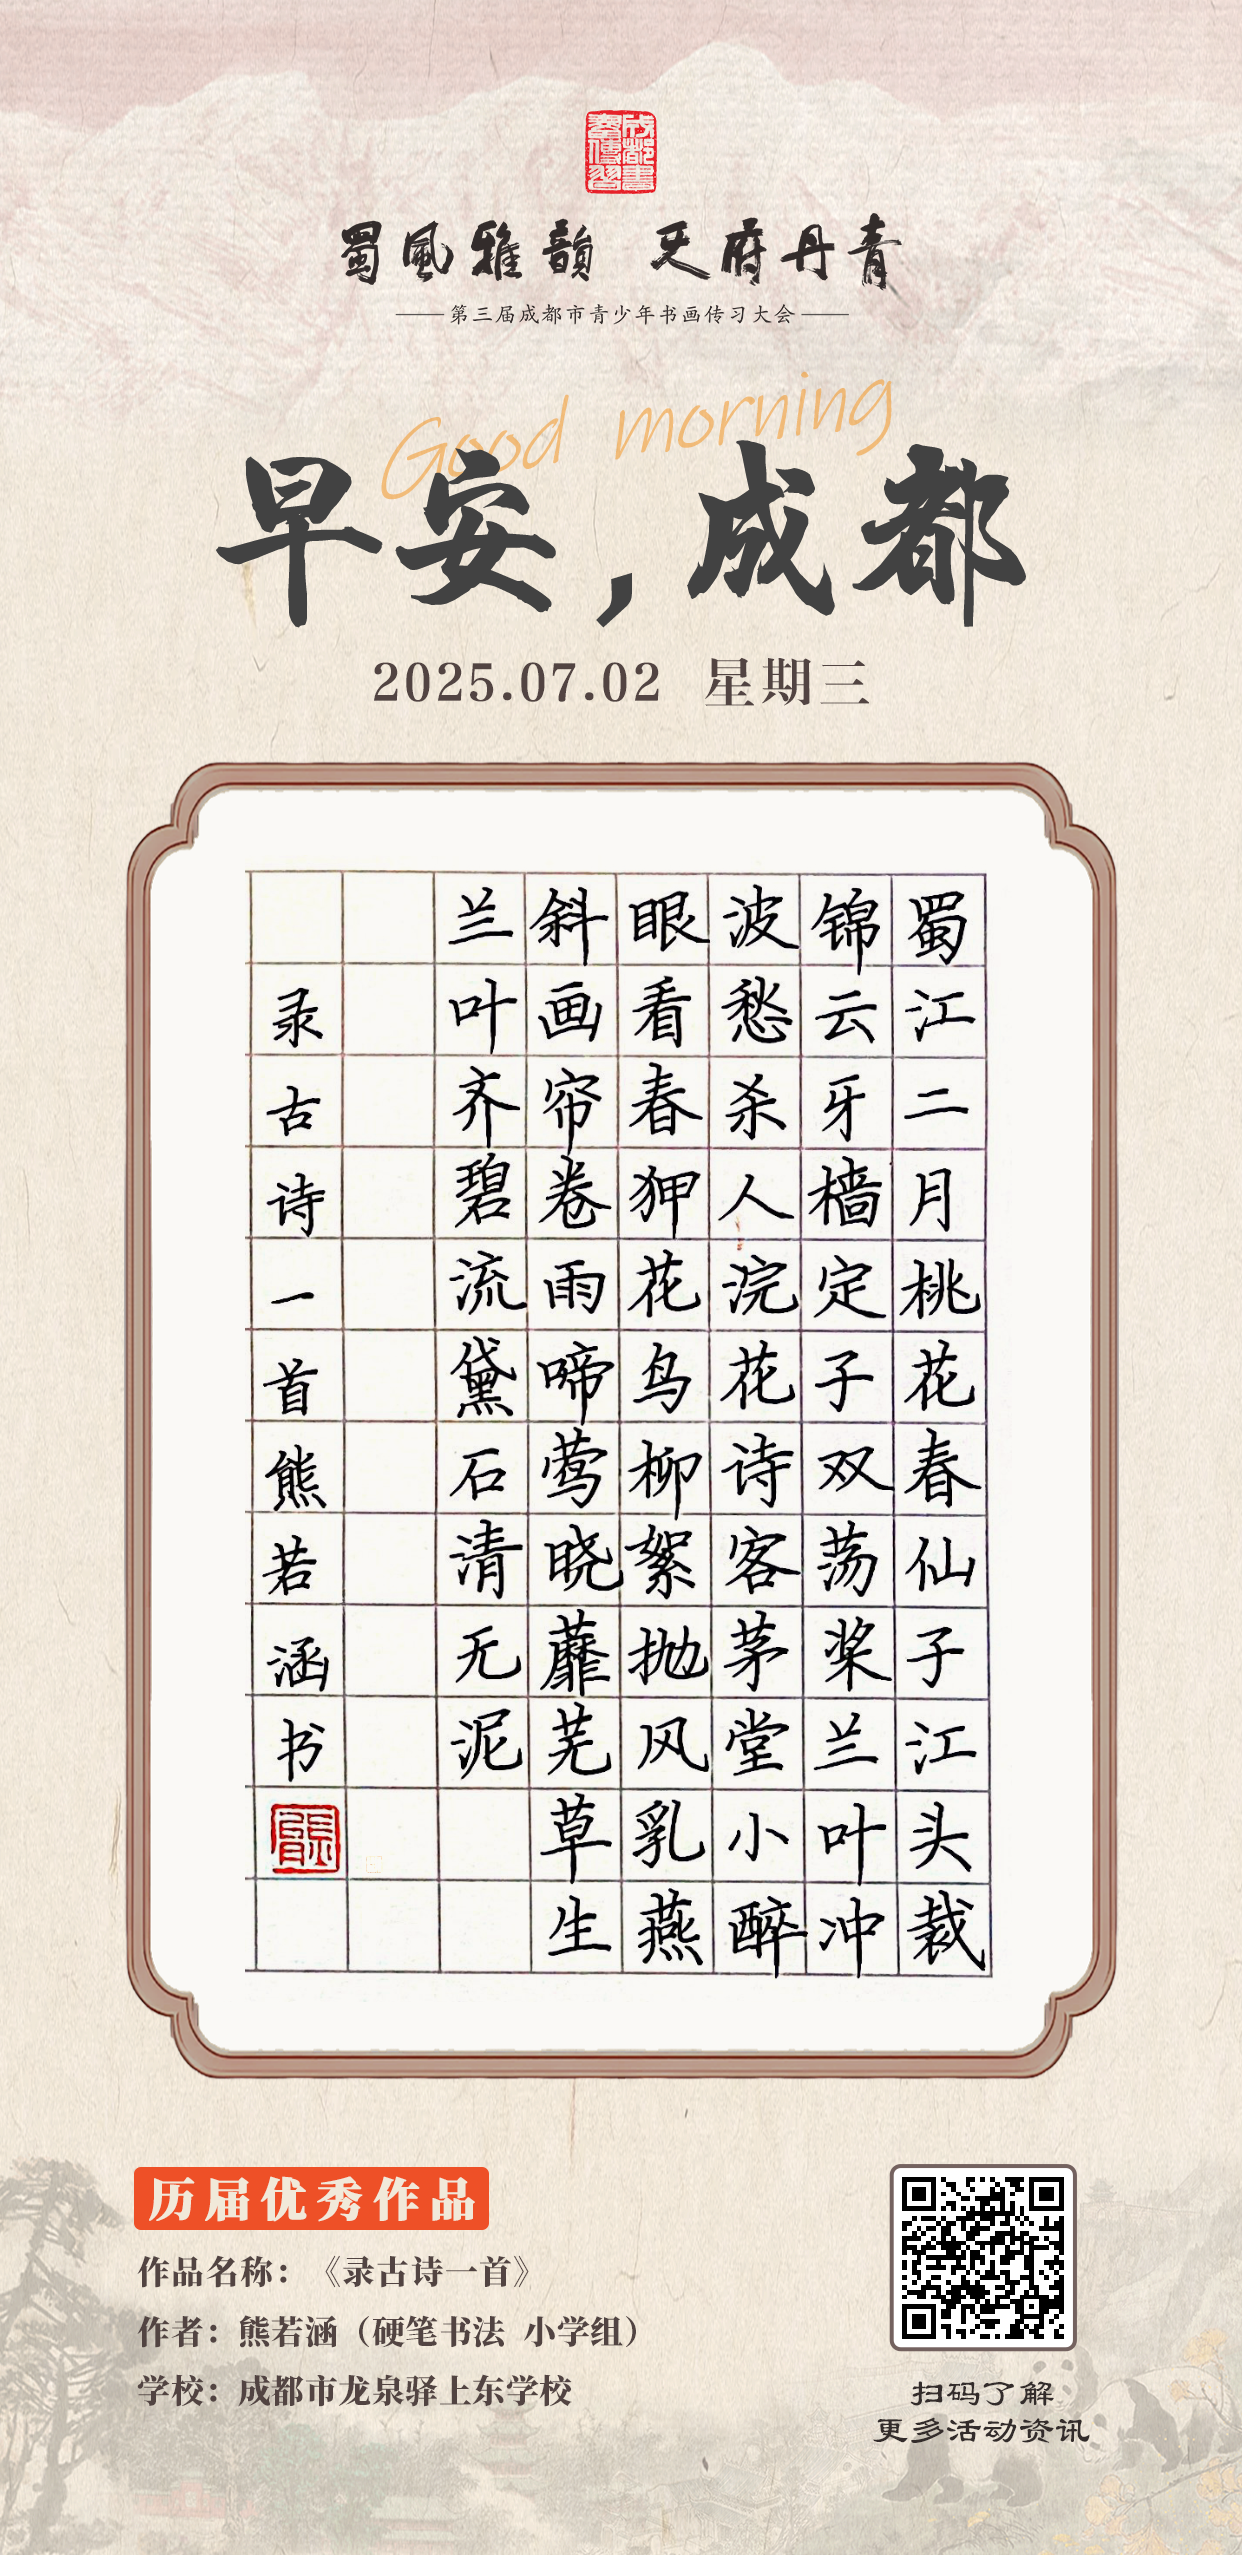 成都书
画传习
蜀風雅韻 天府丹青
第三届成都市青少年书画传习大会
Good morning
早安，成都
2025.07.02 星期三
蜀江二月桃花春仙子江头裁
锦云牙樯定子双荡桨兰叶冲
波愁杀人浣花诗客茅堂小醉
眼看春狎花鸟柳絮抛风乳燕
斜画帘卷雨啼莺晓蘼芜草生
兰叶齐碧流黛石清无泥
录古诗一首熊若涵书
历届优秀作品
作品名称：《录古诗一首》
作者：熊若涵（硬笔书法 小学组）
学校：成都市龙泉驿上东学校
扫码了解
更多活动资讯